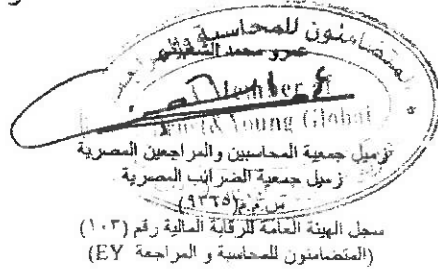 المتضامنون للمحاسبة
عمرو محمد الشعبيني
Member
Ernst & Young Global
زميل جمعية المحاسبين والمراجعين المصرية
زميل جمعية الضرائب المصرية
س.م.م (٩٣٦٥)
سجل الهيئة العامة للرقابة المالية رقم (١٠٣)
(المتضامنون للمحاسبة و المراجعة EY)